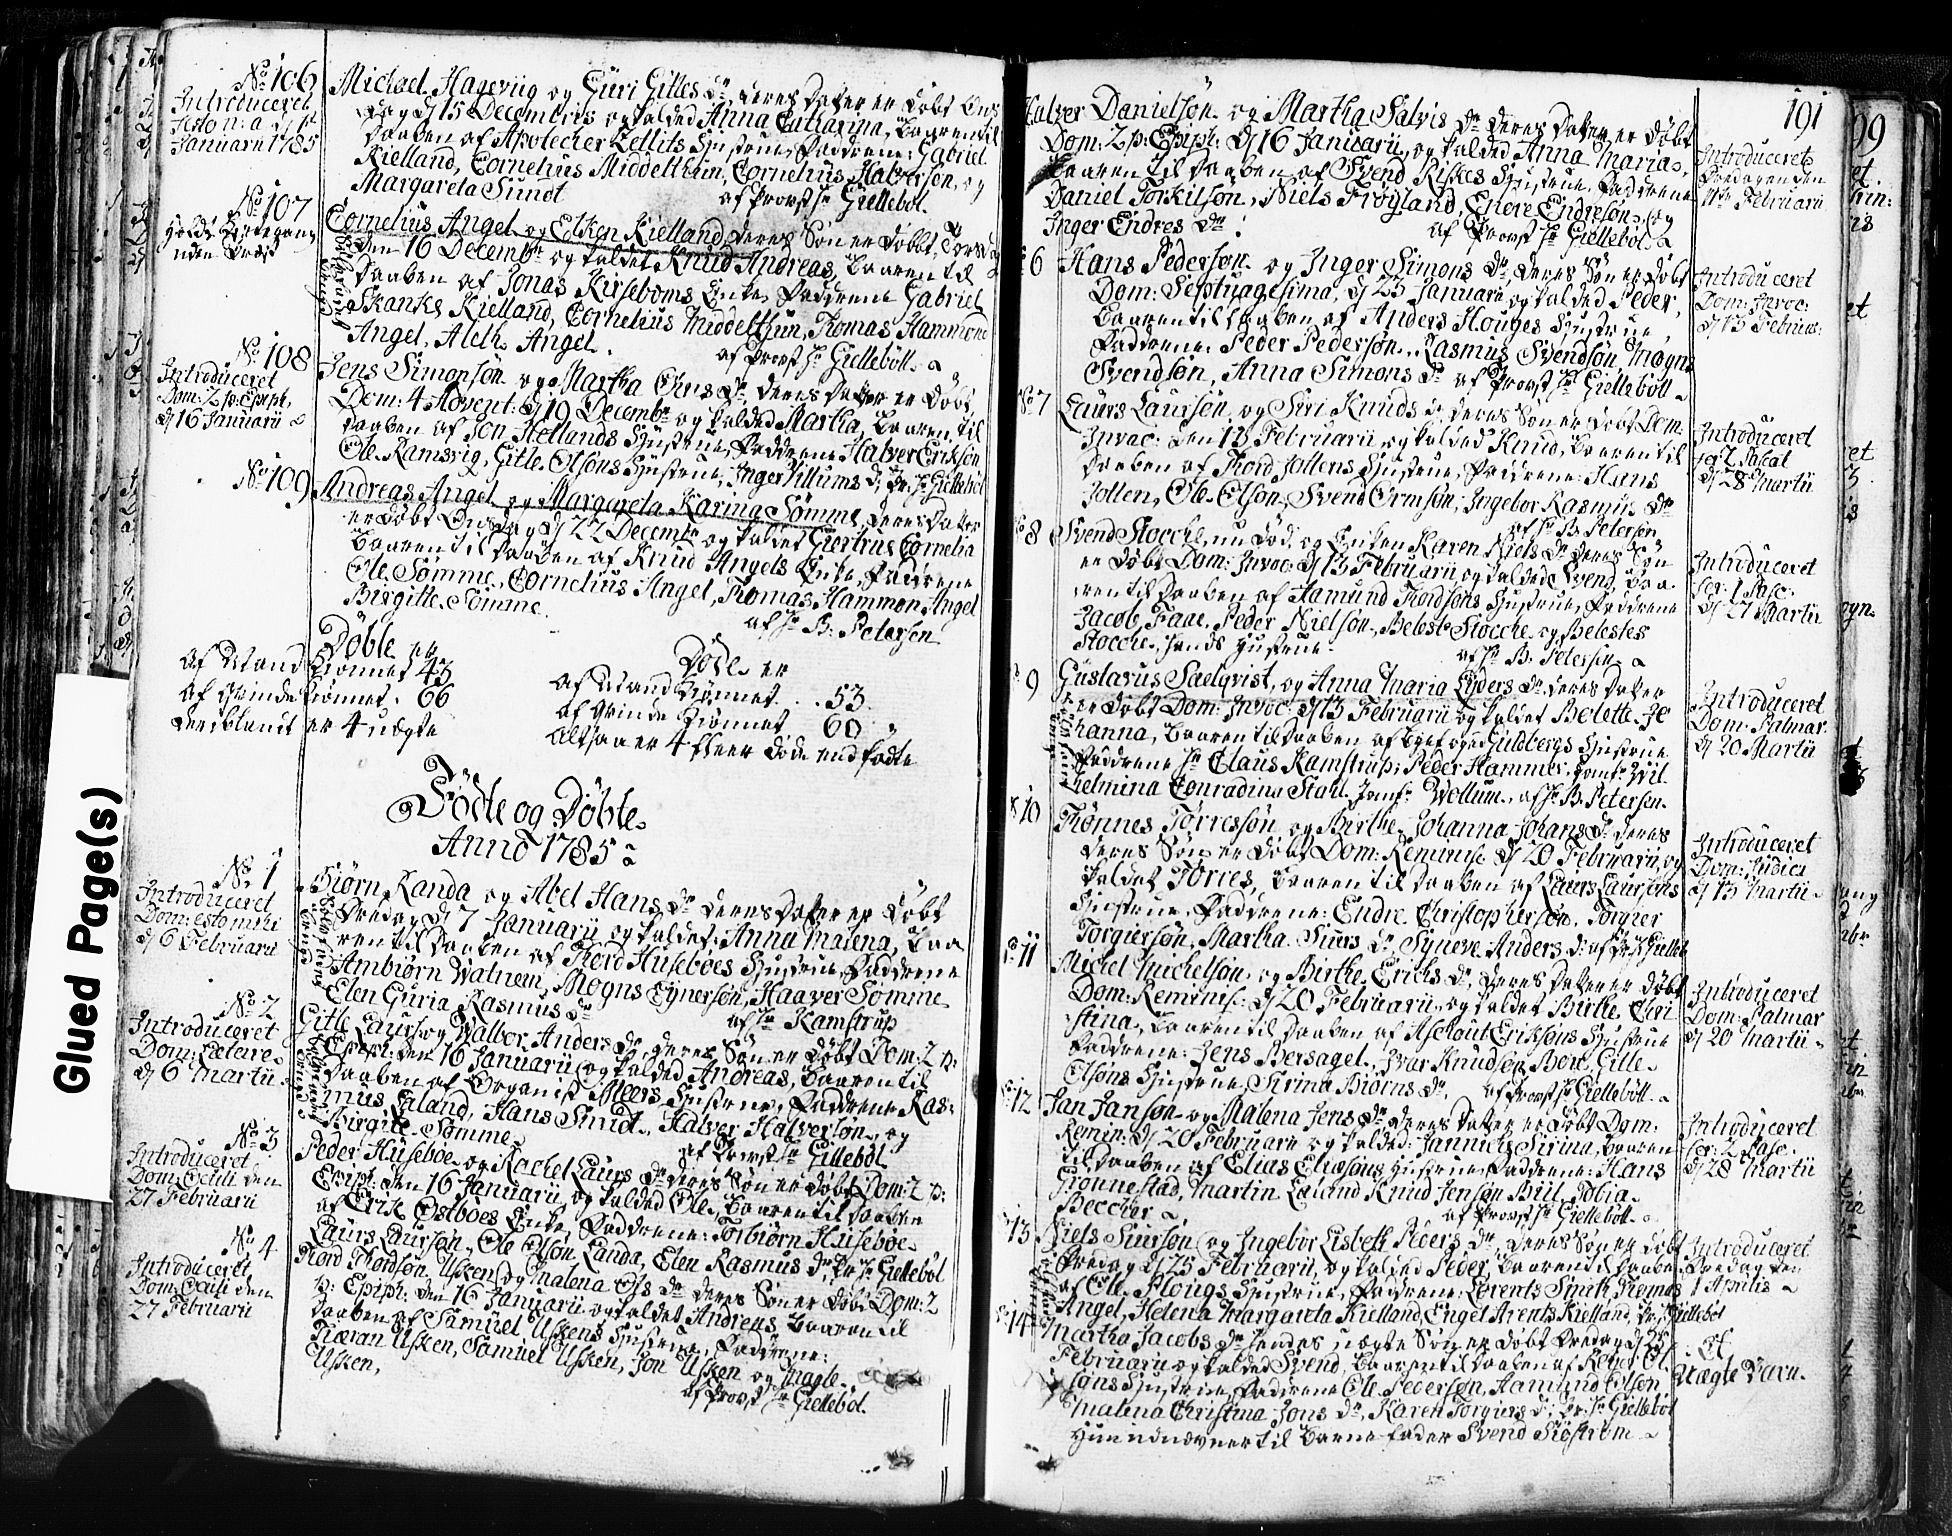 No 106
Introduceret
Festo n: a d 1st
Januarii 1785
Michael Hageviig og Guri Gitles dr, deres Dater er döbt Ons
dag d 15 Decembris og kalded Anna Catharine, baaren til
daaben af Apotecher Zetlits Hustrue, Faddrene: Gabriel
Kielland, Cornelius Middelthun, Cornelius Halversøn, og
Margareta Sundt
af Provst Hr Giellebøl.
No 107
holdt Kirkegang
uden Præst
Cornelius Angel og Elken Kielland, deres Søn er døbt, Torsdag
den 16 Decembr og kaldet Knud Andreas, baaren til
daaben af Jonas Kirseboms Enke, Faddrene Gabriel
Skanke Kielland, Cornelius Middelthun, Thomas Hammond
Angel, Aleth Angel.
af Provst Hr Giellebøll
No 108
Introduceret
Dom: 2 p: Epiph,
d 16 Januarii
Jens Simonsön og Martha Ohns dr, deres Dater er döbt,
Dom: 4 Advent: d 19 Decembr og kaldед Martha, baaren til
daaben af Jon Hellands Hustrue, Faddrene Halver Eriksön
Ole Ramsvig, Gitle Olsöns Hustrue, Inger Villums d, Pr: Hr Giellebøl
No 109
Andreas Angel og Margareta Karina Sömme, deres Dater
er döbt Onsdag d 22 Decembr og kaldet Giertrue Cornelia
baaren til daaben af Knud Angels Enke, Faddrene
Ole Sömme, Cornelius Angel, Thomas Hammon Angel
Birgitte Sömme.
af Hr B: Petersen
Döbte er
af Mand Kiønnet 43
af Qvinde Kiønnet. 66
Deriblandt er 4 uægte
Döde er
af Mand Kiønnet . . 53.
af Qvinde Kiønnet 60
altsaa er 4 fleer döde end fødte
Födte og Döbte
Anno 1785
No 1
Introduceret
Dom: estomihi
d 6 Februarii
Biørn Randa og Abel Hans dr deres Dater er döbt
Fredag d 7 Januarii og kaldet Anna Malena, baa
ren til daaben af Thord Huseboes Hustrue, Faddrene
Ambiørn Watnem, Mogns Eynersön, Haaver Sömme
Elen Guria Rasmus dr
af Hr Kamstrup
No 2
Introduceret
Dom: Lætare
d 6 Martii
Gitle Laurs: og Walbor Anders dr deres Søn er döbt Dom: 2 p:
Epiph: den 16 Januarii og kaldед Andreas, baaren til
daaben af Organist Meers Hustrue, Faddrene Ras:
mus Eeland, Hans Smidt, Halver Halversøn, og
Birgite Sömme.
af Provst Hr Gillebøl
No 3
Introduceret
Dom: Oculi den
27 Februarii
Peder Huseboe og Rachel Laurs dr deres Søn er döbt Dom: 2 p:
Epiph: den 16 Januarii og kalded Ole, baaren til daaben
af Erik Ostboes Enke, Faddrene: Torbiørn Huseboe
Laurs Laursøn, Ole Olsøn Landa, Elen Rasmus dr, Pr: Hr Giellebøl
No 4
Introduceret
Dom: Oculi den
27 Februarii
Thord Thordsøn Usken og Malena Ols dr deres Søn er döbt Dom: 2
p: Epiph: den 16 Januarii og kaldet Andreas baaren til
daaben af Samuel Uskens Hustrue, Faddrene:
Tiæran Usken, Samuel Usken, Jon Usken og Magle
Usken,
af Provst Hr Giellebøl.
191
Halver Danielsön og Martha Salvis dr deres Dater er döbt
Dom: 2 p: Epiph: d 16 Januarii, og kalded Anna Maria,
baaren til daaben af Svend Riskes Hustrue, Faddrene
Daniel Torkilsön, Niels Frøyland, Endre Endresön, og
Inger Endres dr
af Provst Hr Giellebøl
Introduceret
Fredagen den
11te Februarii
6
Hans Pedersøn og Inger Simons dr, deres Søn er döbt
Dom: Septuagesima, d 23 Januarii, og kaldеd Peder,
baaren til daaben af Anders Houges Hustrue,
Faddrene: Peder Pedersøn, Rasmus Svendsön, Mogns
Svendsön, Anna Simons dr af Provst Hr Giellebøll
Introduceret
Dom: Invoc:
d 13 Februar:
No 7
Laurs Laursøn og Siri Knuds dr deres Søn er döbt Dom
Invoc: den 13 Februarii og kaldеd Knud, baaren til
daaben af Thord Joltens Hustrue, Faddrene: Hans
Jolten, Ole Olson, Svend Ormsøn, Ingebor Rasmus dr
af Hr B: Petersen
Introduceret
Fer: 2 Pascat
d 28 Martii
8
Svend Stocche, nu död, og Enken Karen Niels dr deres Søn
er döbt Dom: Invoc: d 13 Februarii og kaldеd Svend, baa
ren til daaben af Aamund Thordsöns Hustrue, Faddrene
Jacob Faae, Peder Nielsøn, Beleste Stocche og Belestes
Stocche, hands Hustrue
af Hr B: Petersen
Introduceret
Fer: 1 Pasc:
d 27 Martii
9
Gustavus Saelqvist, og Anna Maria Eyders dr, deres Dater
er döbt Dom: Invoc: d 13 Februarii og kaldet Belette Jo
hanna, baaren til daaben af Byefoged Guldbergs Hustrue
Faddrene Hr Claus Kamstrup, Peder Hammer, Jomfr: Vil
helmina Conradina Stahl, Jomfr: Wollum, af Hr B: Petersen
Introduceret
Dom: Palmar:
d 20 Martii
10
Thønnes Tørressøn og Birthe Johanna Johans dr deres
deres Søn er döbt Dom: Reminisc: d 20 Februarii, og
kaldet Tørres, baaren til daaben af Laurs Laursøns
Hustrue, Faddrene: Endre Christophersøn, Torgier
Torgiersøn, Martha Siurs dr, Syneve Anders d: af Pr: Hr Gielleb
Introduceret
Dom: Judica
d 13 Martii
11
Michel Michelsøn og Birthe Erichs dr, deres Dater er döbt
Dom: Reminisc: d 20 Februarii og kaldet Birthe Chri
stina, baaren til daaben af Aschout Eriksøns Hustrue
Faddrene: Jens Bersagel, Ivar Knudsen Bore, Gitle
Olsøns Hustrue, Sirina Biørns dr, af Provst Hr Giellebøll
Introduceret
Dom: Palmar
d 20 Martii
12
Jan Jansøn og Malena Jens dr deres Dater er döbt Dom:
Remin: d 20 Februarii og kaldеd: Jannicke Sirina, baaren
til daaben af Elias Eliæsøns Hustrue, Faddrene: Hans
Grønnestad, Martin Eeland, Knud Jensøn Buil, Tobia
Beccher
af Provst Hr Giellebøll
Introduceret
Fer: 2 Pasc:
d 28 Martii
13
Niels Siursøn og Ingebor Lisbeth Peders dr, deres Søn er döbt
Fredag d 25 Februarii, og kaldеd Peder, baaren til daaben
af Ole Plougs Hustrue, Faddrene: Lorents Smith Petersen
Angel, Helena Margareta Kielland, Engel Arentz Kielland, Pr: Hr Giellebøl
Introduceret
Fredag den
1 Aprilis
14
Martha Jacobs dr hendes uægte Søn er döbt Fredag d 25
Februarii og kaldеd Svend, baaren til daaben af Reyer Ol
søns Hustrue, Faddrene Ole Pedersøn, Aamund Olsøn,
Malena Christina Jons dr, Karen Torgiers d:, Pr: Hr Giellebøl
Hun udnævner til barne fader Svend Siöstrøm
Et
Uægte Barn.
Glued Page(s)
99